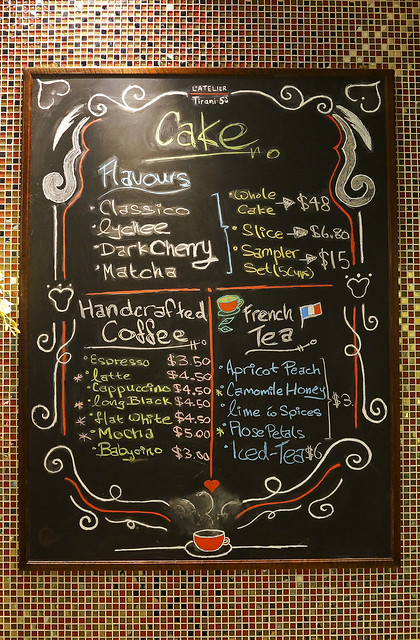 L'ATELIER
Tirami·Sú
Cake
Flavours
· Classico
· Lychee
· Dark Cherry
· Matcha
· Whole Cake $48
· Slice $6.80
· Sampler Set (5 Cups) $15
Handcrafted
Coffee
· Espresso $3.50
* · latte $4.50
· Cappuccino $4.50
* · long Black $4.50
* · flat white $4.50
* · Mocha $5.00
· Babycino $3.00
French
Tea
· Apricot Peach
* Camomile Honey
· lime & Spices
* Rose Petals
$3.
· Iced-Tea $6